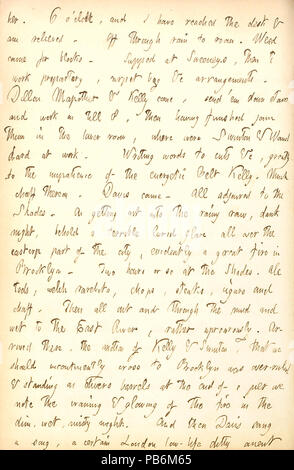 her. 6 o'clock, and I have reached the desk &
am relieved. Off through rain to room. Weed
came for blocks. Supped at Sweeneys, then I
work preparatory, carpet bag &c arrangements.
Dillon Mapother & Kelly came, send 'em down stairs
and work in till 8, then having finished join
them in the lower room, where were Swinton &
hard at work. Writing words to cuts &c, greatly
to the of the energetic Celt Kelly. Much
chaff thereon. Davis came. All adjourned to the
Shades. On getting out into the rainy raw, dark
night, behold a terrible lurid glare all over the
eastern part of the city, evidently a great fire in
Brooklyn. Two hours or so at the Shades. Ale
tods, welch rarebits, chops, steaks, cigars and
chaff. Then all out and through the mud and
wet to the East River, rather uproariously. Ar-
rived there, the motion of Kelly & Swinton, that we
should incontinently cross to Brooklyn was over-ruled
& standing on barrels at the end of a pier we
note the waning & glowing of the fire in the
dim, wet, misty night. And then Davis sang
a song, a certain London low-life ditty anent
alamy
PB6M65